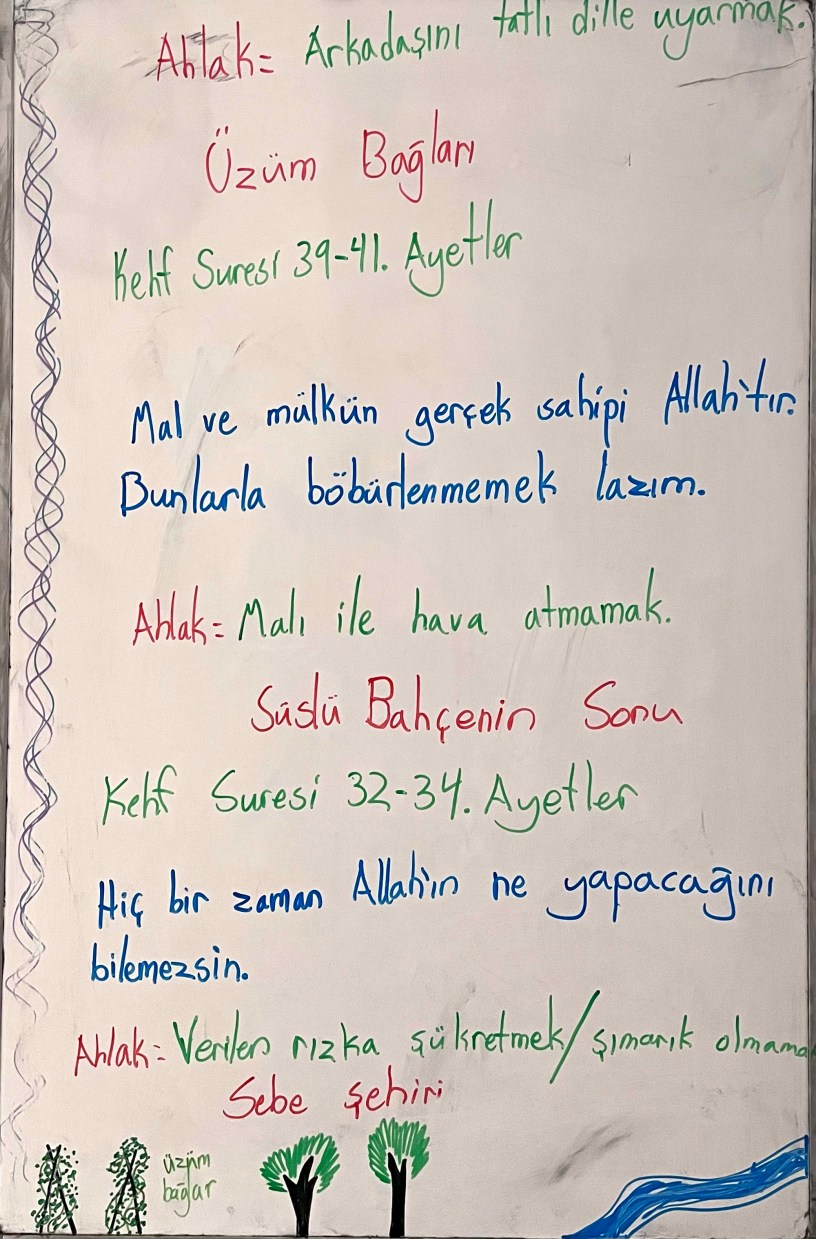 Ahlak= Arkadaşını tatlı dille uyarmak.
Üzüm Bağları
Kehf Suresi 39-41. Ayetler
Mal ve mülkün gerçek sahipi Allah'tır.
Bunlarla böbürlenmemek lazım.
Ahlak= Malı ile hava atmamak.
Süslü Bahçenin Sonu
Kehf Suresi 32-34. Ayetler
Hiç bir zaman Allah'ın ne yapacağını
bilemezsin.
Ahlak= Verilen rızka şükretmek/şımarık olmama
Sebe şehiri
üzüm
bağlar